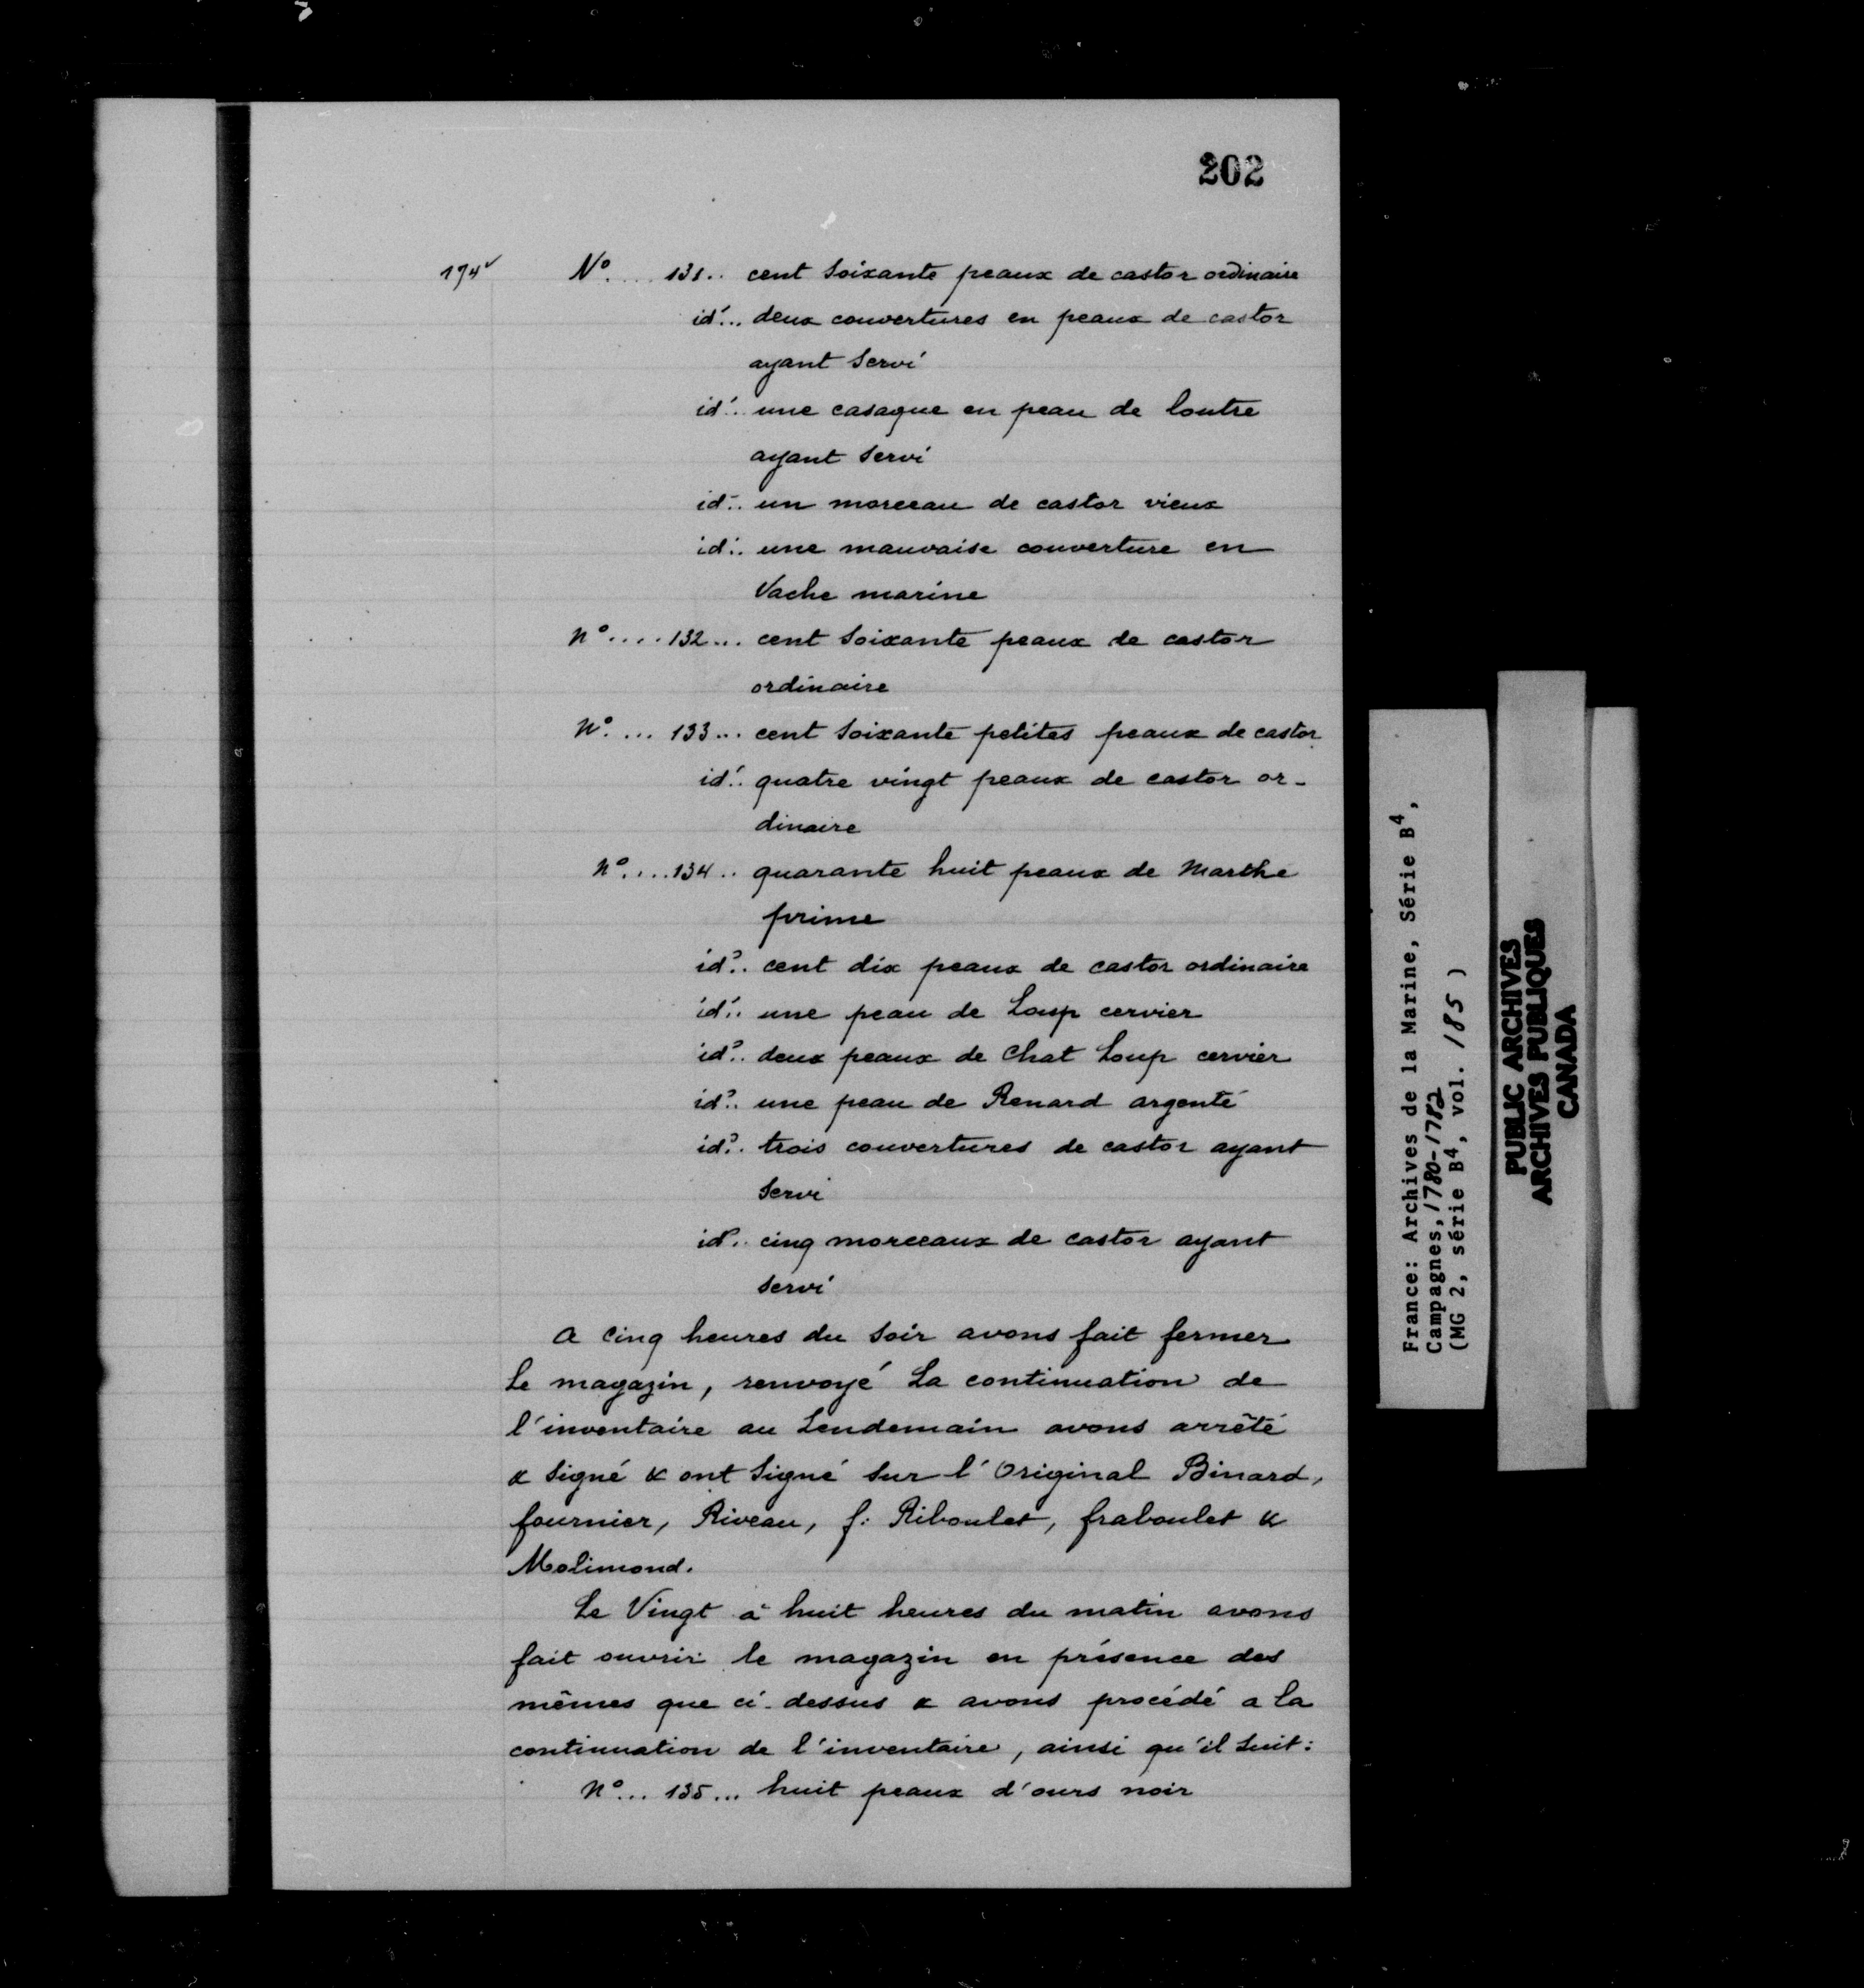 202
174v
N°.... 131.. cent soixante peaux de castor ordinaire
id... deux couvertures en peaux de castor
ayant servi
id.. une casaque en peau de loutre
ayant servi
id.. un morceau de castor vieux
id.. une mauvaise couverture en
Vache marine
N°.... 132... cent soixante peaux de castor
ordinaire
N°.... 133... cent soixante petites peaux de castor
id.. quatre vingt peaux de castor or-
dinaire
N°.... 134.. quarante huit peaux de Marthe
prime
id.. cent dix peaux de castor ordinaire
id.. une peau de Loup cervier
id.. deux peaux de Chat Loup cervier
id.. une peau de Renard argenté
id.. trois couvertures de castor ayant
servi
id.. cinq morceaux de castor ayant
servi
A cinq heures du soir avons fait fermer
le magazin, renvoyé La continuation de
l'inventaire au Lendemain avons arrêté
& signé & ont signé sur l'Original Binard,
fournier, Riveau, f: Riboulet, fraboulet &
Molimond.
Le Vingt à huit heures du matin avons
fait ouvrir le magazin en présence des
mêmes que ci-dessus & avons procédé a la
continuation de l'inventaire, ainsi qu'il suit:
N°... 135... huit peaux d'ours noir
France: Archives de la Marine, Série B4,
Campagnes, 1780-1782
(MG 2, série B4, vol. 185)
PUBLIC ARCHIVES
ARCHIVES PUBLIQUES
CANADA